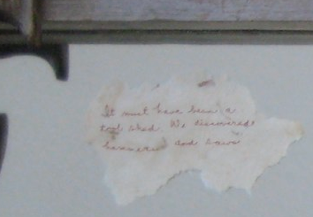 It must have been a
tool shed. We discovered
hammers and saws